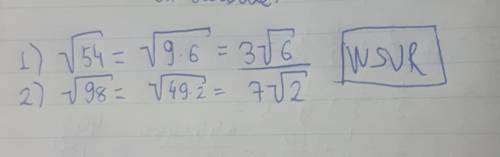 1) √54 = √9·6 = 3√6
2) √98 = √49·2 = 7√2
WSVR